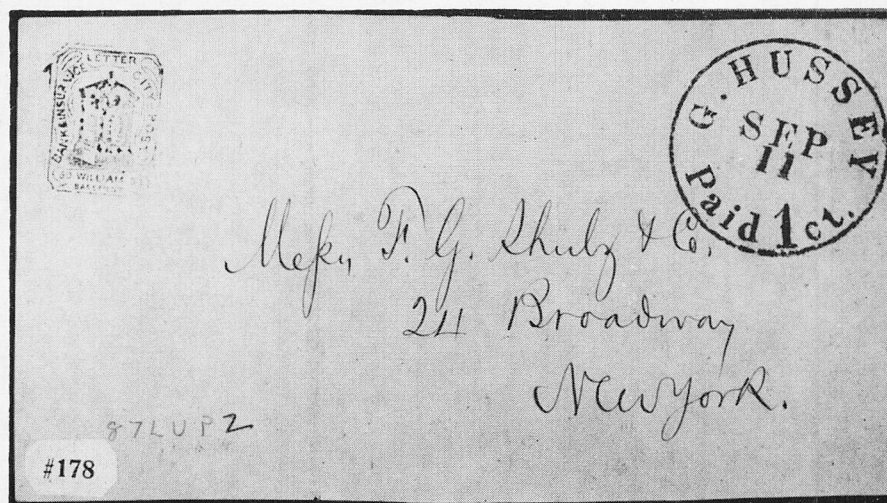 LETTER
BANK & INSURANCE
CITY
50 WILLIAM ST
BASEMENT
G. HUSSEY
SEP
11
Paid 1 ct.
Mess, F. G. Shulz & Co,
24 Broadway
New York.
87LUP2
#178